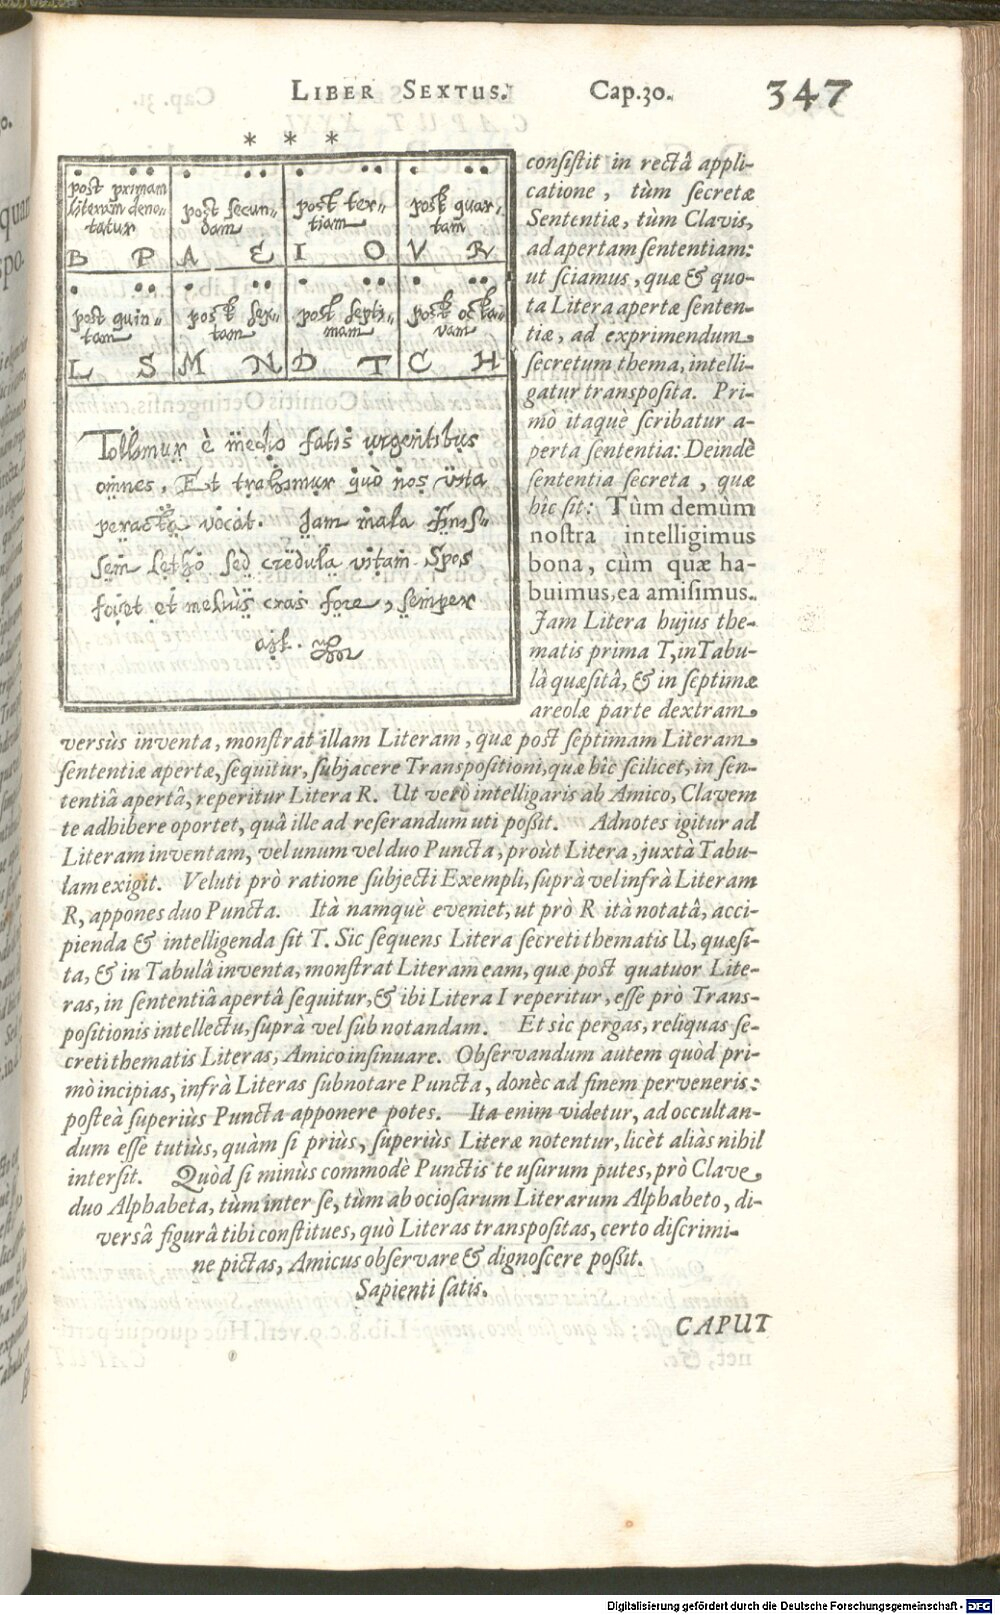 LIBER SEXTUS. Cap.30. 347
* * *
post primam literam denotatur
B P
post secundam
A E
post tertiam
I O
post quartam
V R
post quintam
L S
post sextam
M N
post septimam
D T
post octavam
C H
Tollimur è medio fatis urgentibus
omnes. Et trahimur quò nos vita
peracta vocat. Jam mala finis-
sem Letho sed credula vitam Spes
fovet et meliùs cras fore, semper
ait.
consistit in rectâ appli-
catione, tùm secretæ
Sententiæ, tùm Clavis,
ad apertam sententiam:
ut sciamus, quæ & quo-
ta Litera apertæ senten-
tiæ, ad exprimendum
secretum thema, intelli-
gatur transposita. Pri-
mò itaquè scribatur a-
perta sententia: Deindè
sententia secreta, quæ
hîc sit: Tùm demum
nostra intelligimus
bona, cùm quæ ha-
buimus, ea amisimus.
Jam Litera hujus the-
matis prima T, in Tabu-
lâ quæsitâ, & in septimæ
areolæ parte dextram
versùs inventa, monstrat illam Literam, quæ post septimam Literam
sententiæ apertæ, sequitur, subjacere Transpositioni, quæ hîc scilicet, in sen-
tentiâ apertâ, reperitur Litera R. Ut verò intelligaris ab Amico, Clavem
te adhibere oportet, quâ ille ad reserandum uti poßit. Adnotes igitur ad
Literam inventam, vel unum vel duo Puncta, proùt Litera, juxtà Tabu-
lam exigit. Veluti prò ratione subjecti Exempli, suprà vel infrà Literam
R, appones duo Puncta. Ità namquè eveniet, ut prò R ità notatâ, acci-
pienda & intelligenda sit T. Sic sequens Litera secreti thematis U, quæsi-
ta, & in Tabulâ inventa, monstrat Literam eam, quæ post quatuor Lite-
ras, in sententiâ apertâ sequitur, & ibi Litera I reperitur, esse prò Trans-
positionis intellectu, suprà vel sub notandam. Et sìc pergas, reliquas se-
creti thematis Literas, Amico insinuare. Observandum autem quòd pri-
mò incipias, infrà Literas subnotare Puncta, donèc ad finem perveneris:
posteà superiùs Puncta apponere potes. Ita enim videtur, ad occultan-
dum esse tutiùs, quàm si priùs, superiùs Literæ notentur, licèt aliàs nihil
intersit. Quòd si minùs commodè Punctis te usurum putes, prò Clave
duo Alphabeta, tùm inter se, tùm ab ociosarum Literarum Alphabeto, di-
versâ figurâ tibi constitues, quò Literas transpositas, certo discrimi-
ne pictas, Amicus observare & dignoscere poßit.
Sapienti satis.
CAPUT
Digitalisierung gefördert durch die Deutsche Forschungsgemeinschaft - DFG